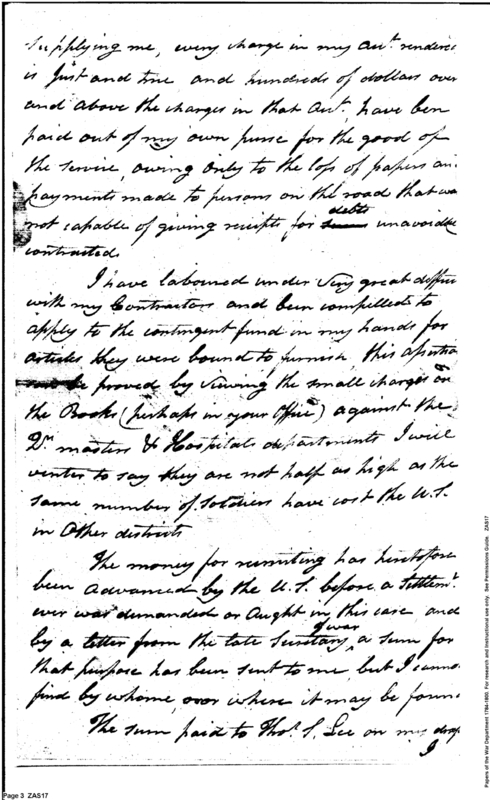 supplying me, every charge in my acct. rendered
is just and true and hundreds of dollars over
and above the charges in that acct. have ben
paid out of my own purse for the good of
the service, owing only to the loss of papers an
payments made to persons on the road that wa
not capable of giving receipts for debts unavoidbe
contracted.
I have laboured under very great diffic
with my Contractors and been compelled to
apply to the contingent fund in my hands for
articles they were bound to furnish, this assertio
be proved by viewing the small charges on
the Books (perhaps in your Office) against the
Qr. masters & Hospitals departments I will
venter to say they are not half as high as the
same number of soldiers have cost the U.S.
in Other districts
The money for recruiting has heretofore
been advanced by the U.S. before a Settlemt.
ever was demanded or Aught in this case and
by a letter from the late Secretary of war, a sum for
that purpose has been sent to me, but I canno
find by whome, or where it may be foun
The sum paid to Thos. S. Lee on my drap
I
Page 3 ZAS17
Papers of the War Department 1784-1800. For research and instructional use only. See Permissions Guide. ZAS17